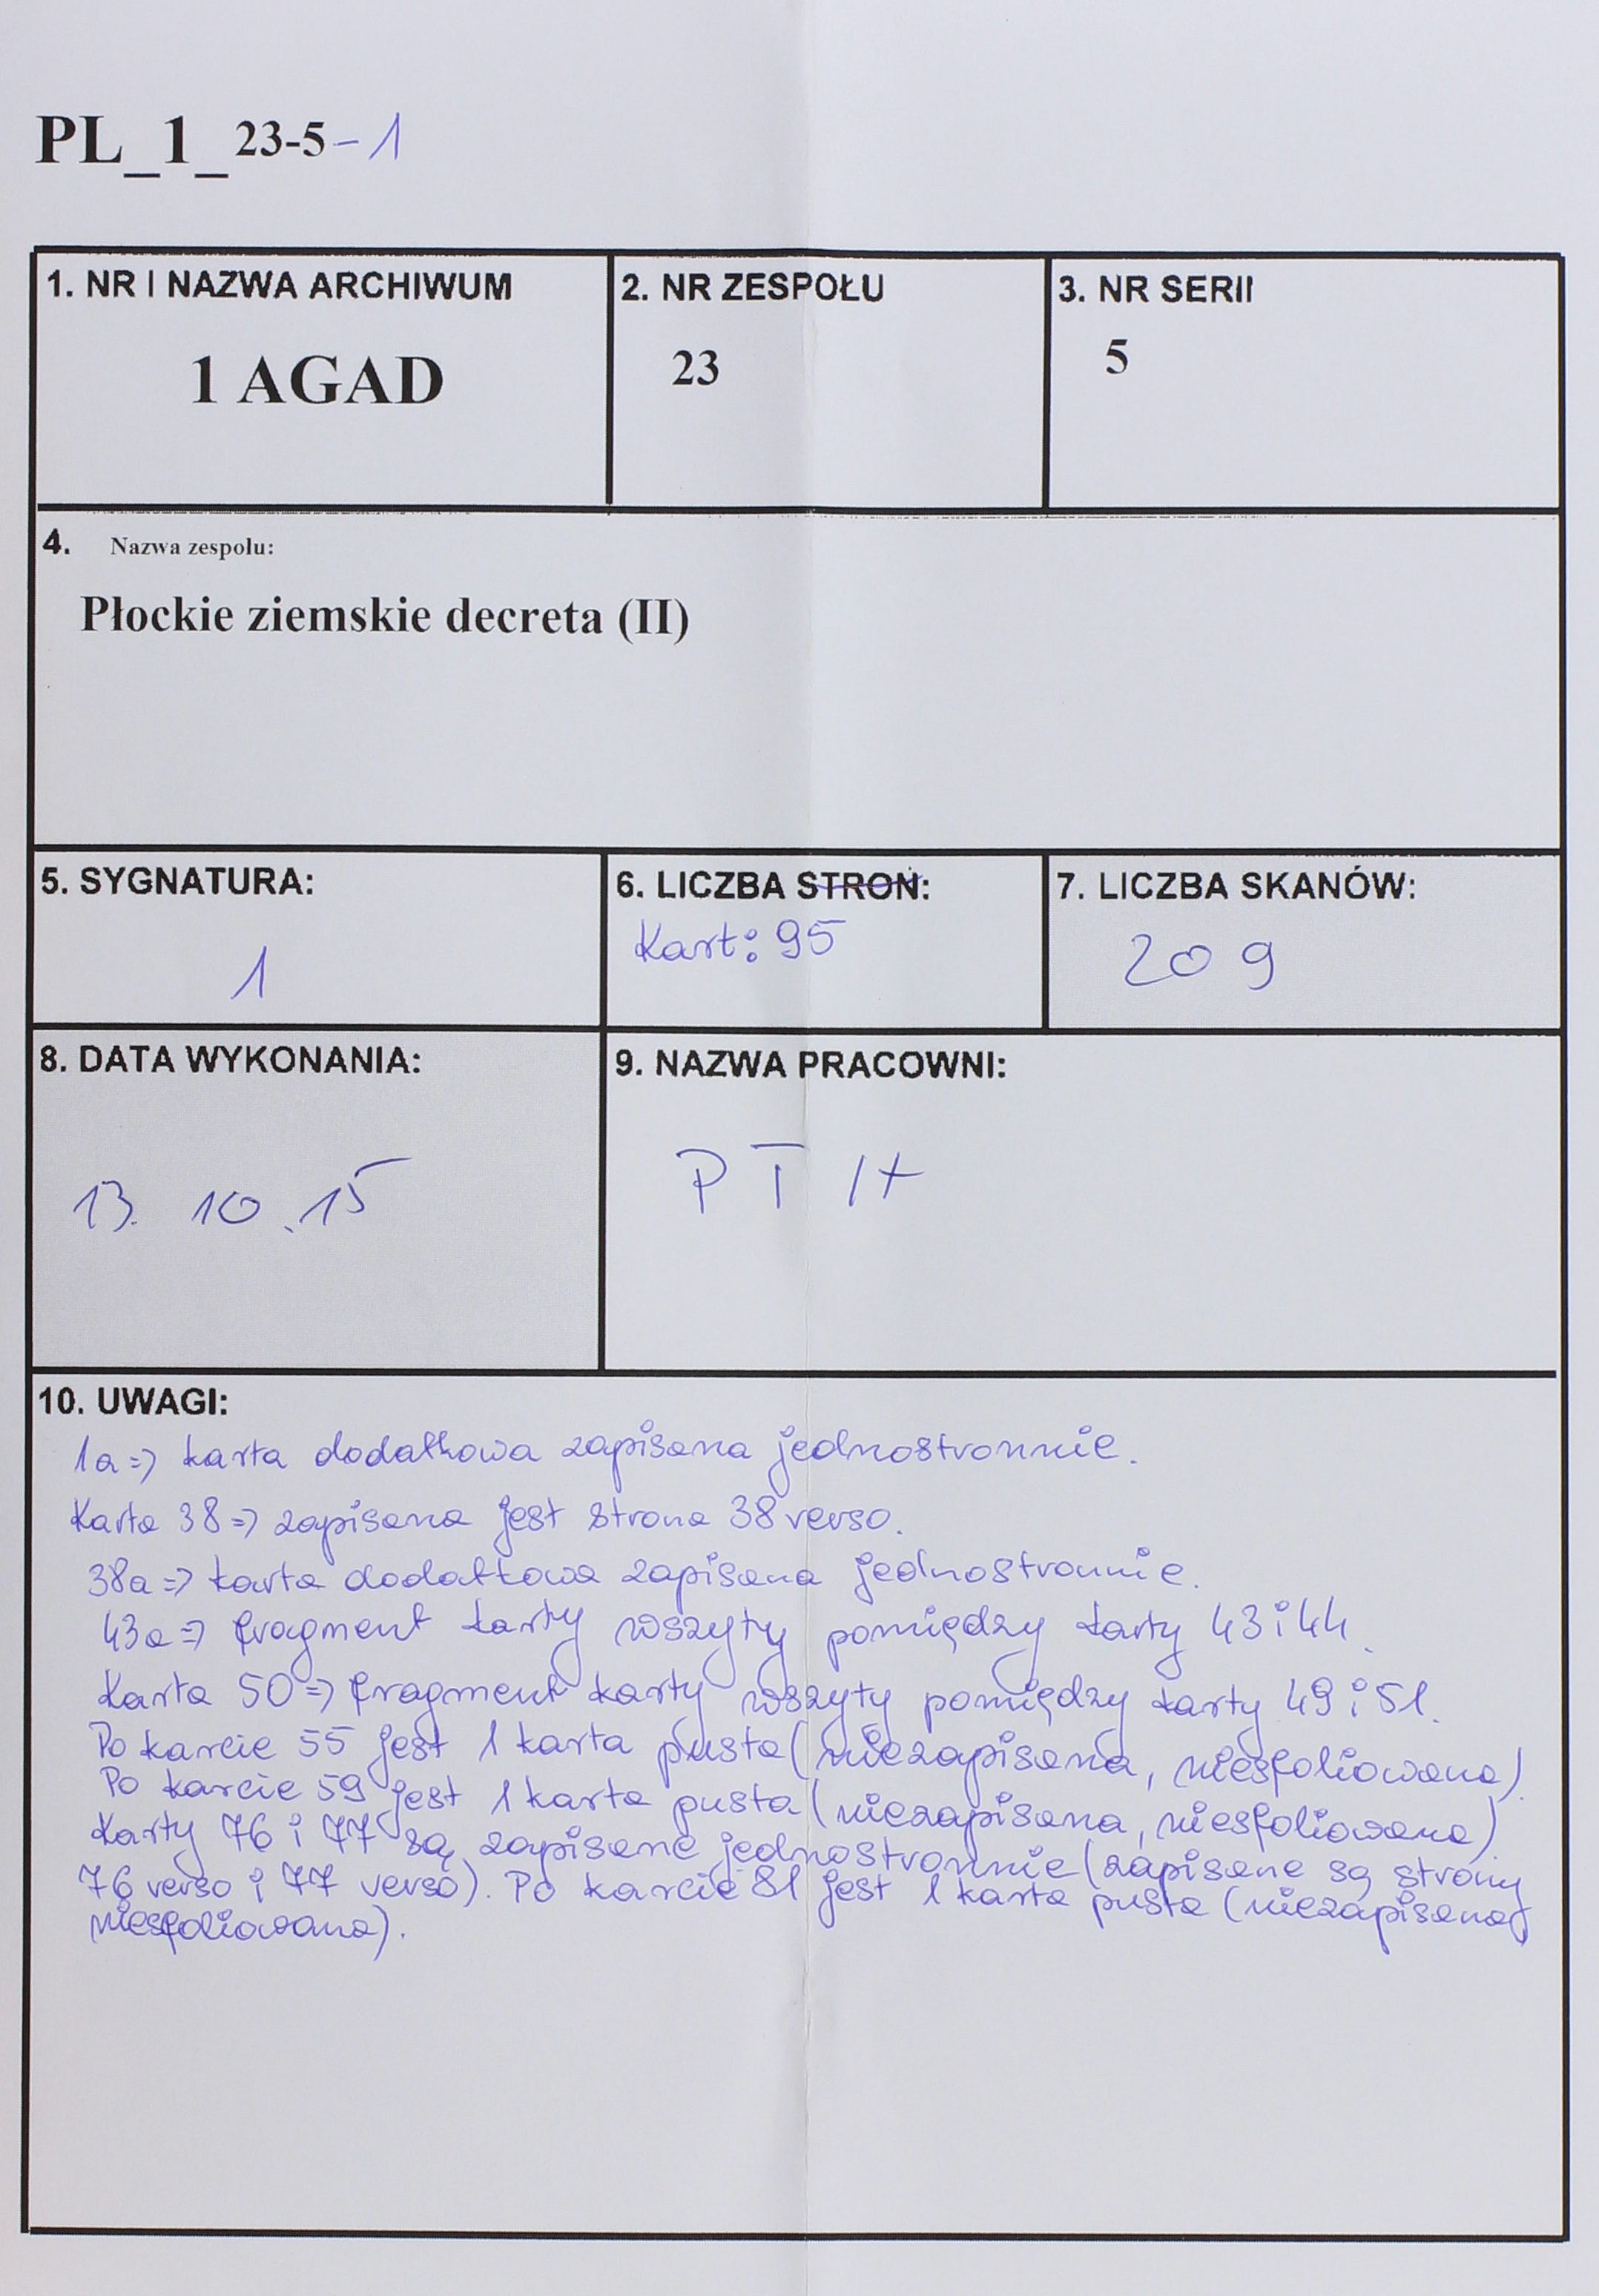 PL_1_23-5-1
1. NR I NAZWA ARCHIWUM
1 AGAD
2. NR ZESPOŁU
23
3. NR SERII
5
4. Nazwa zespolu:
Płockie ziemskie decreta (II)
5. SYGNATURA:
1
6. LICZBA STRON:
Kart: 95
7. LICZBA SKANÓW:
209
8. DATA WYKONANIA:
13. 10.15
9. NAZWA PRACOWNI:
P T
10. UWAGI:
1a => karta dodatkowa zapisana jednostronnie.
Karta 38 => zapisana jest strona 38 verso.
38a => karta dodatkowa zapisana jednostronnie.
43a => fragment karty wszyty pomiędzy karty 43 i 44.
Karta 50 => fragment karty wszyty pomiędzy karty 49 i 51.
Po karcie 55 jest 1 karta pusta (niezapisana, niesfoliowana).
Po karcie 59 jest 1 karta pusta (niezapisana, niesfoliowana).
Karty 76 i 77 są zapisane jednostronnie (zapisane są strony
76 verso i 77 verso). Po karcie 81 jest 1 karta pusta (niezapisana,
niesfoliowana).